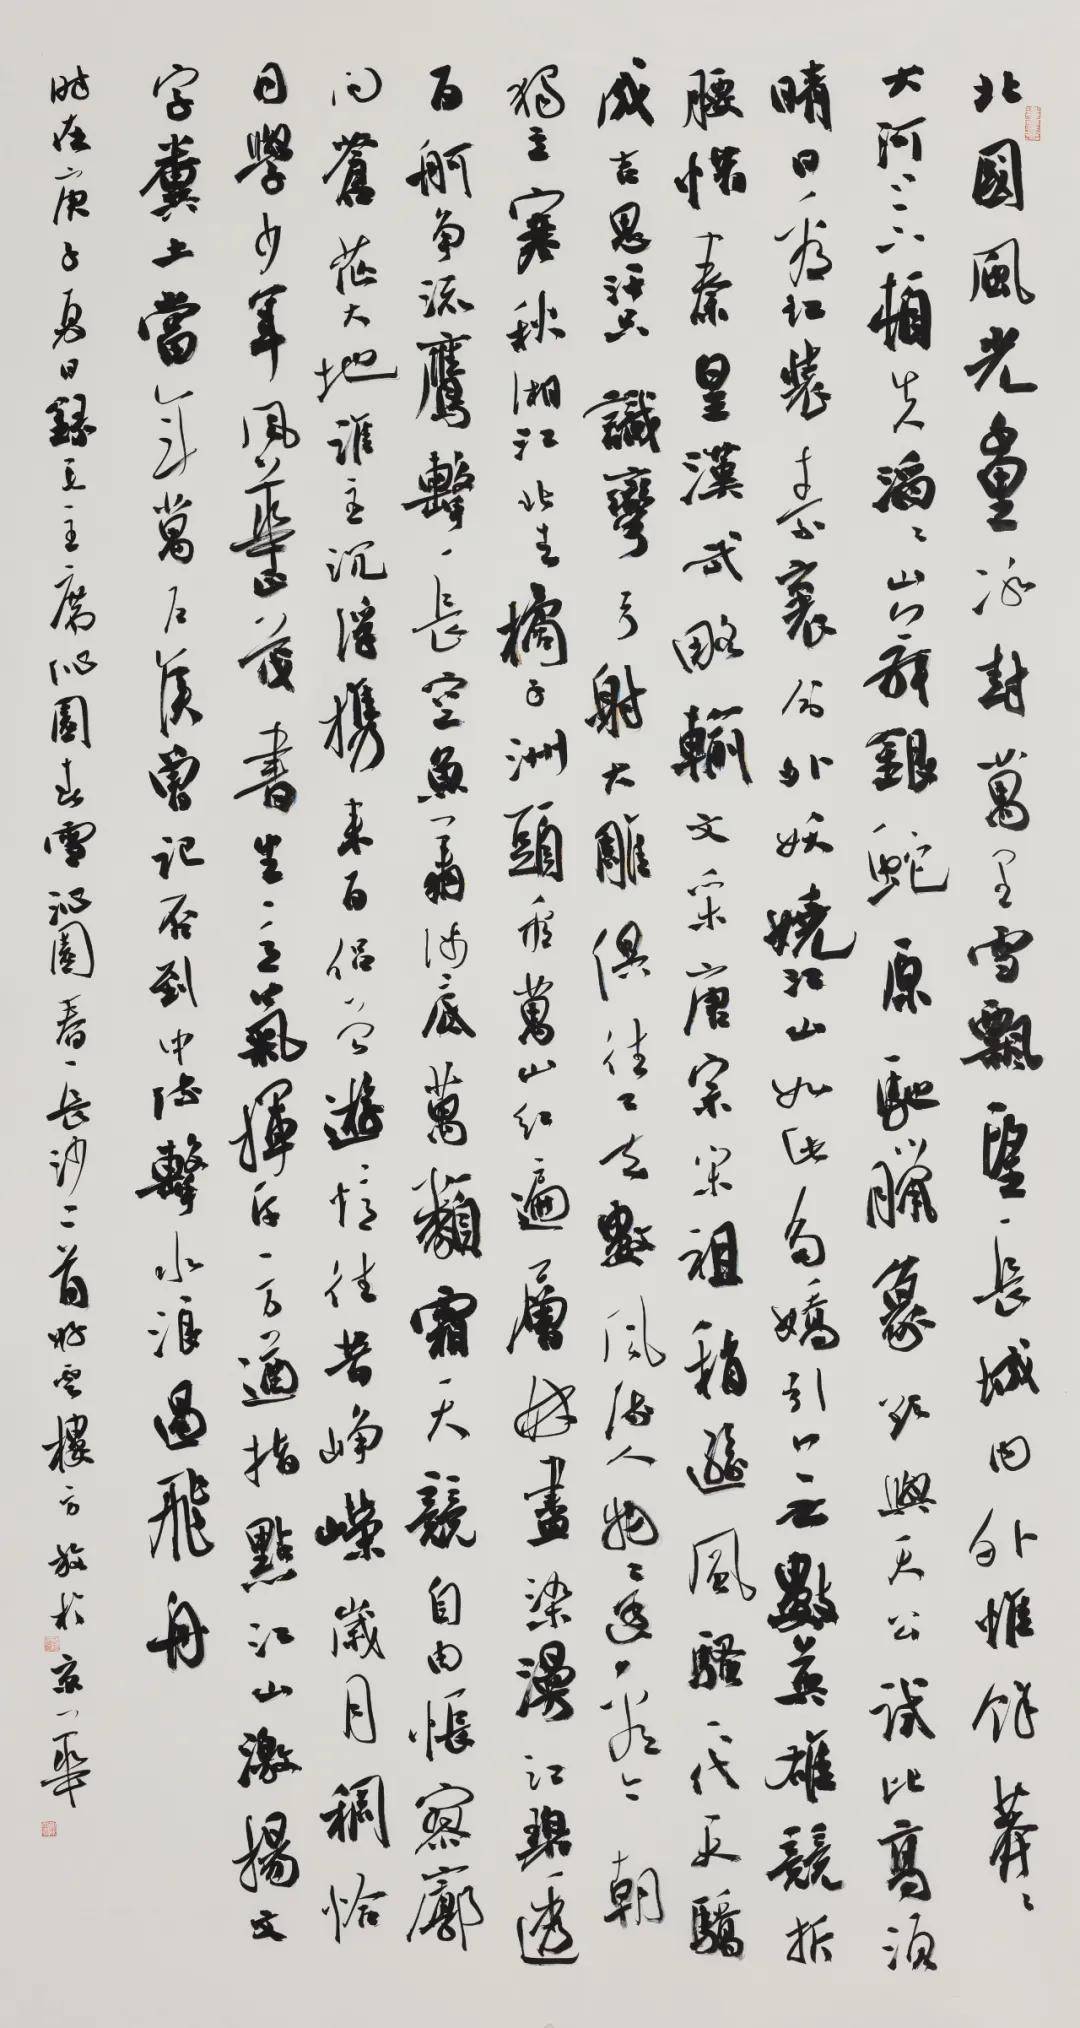 北國風光千里冰封萬里雪飄望長城內外惟餘莽〻
大河上下頓失滔〻山舞銀蛇原馳臘象欲與天公試比高須
晴日看紅裝素裹分外妖嬈江山如此多嬌引無數英雄競折
腰惜秦皇漢武略輸文采唐宗宋祖稍遜風騷一代天驕
成吉思汗只識彎弓射大雕俱往矣數風流人物還看今朝
獨立寒秋湘江北去橘子洲頭看萬山紅遍層林盡染漫江碧透
百舸爭流鷹擊長空魚翔淺底萬類霜天競自由悵寥廓
問蒼茫大地誰主沉浮攜來百侶曾遊憶往昔崢嶸歲月稠恰
同學少年風華正茂書生意氣揮斥方遒指點江山激揚文
字糞土當年萬戶侯曾記否到中流擊水浪遏飛舟
時在庚子夏日錄毛主席沁園春雪沁園春長沙二首雲樓方放於京華